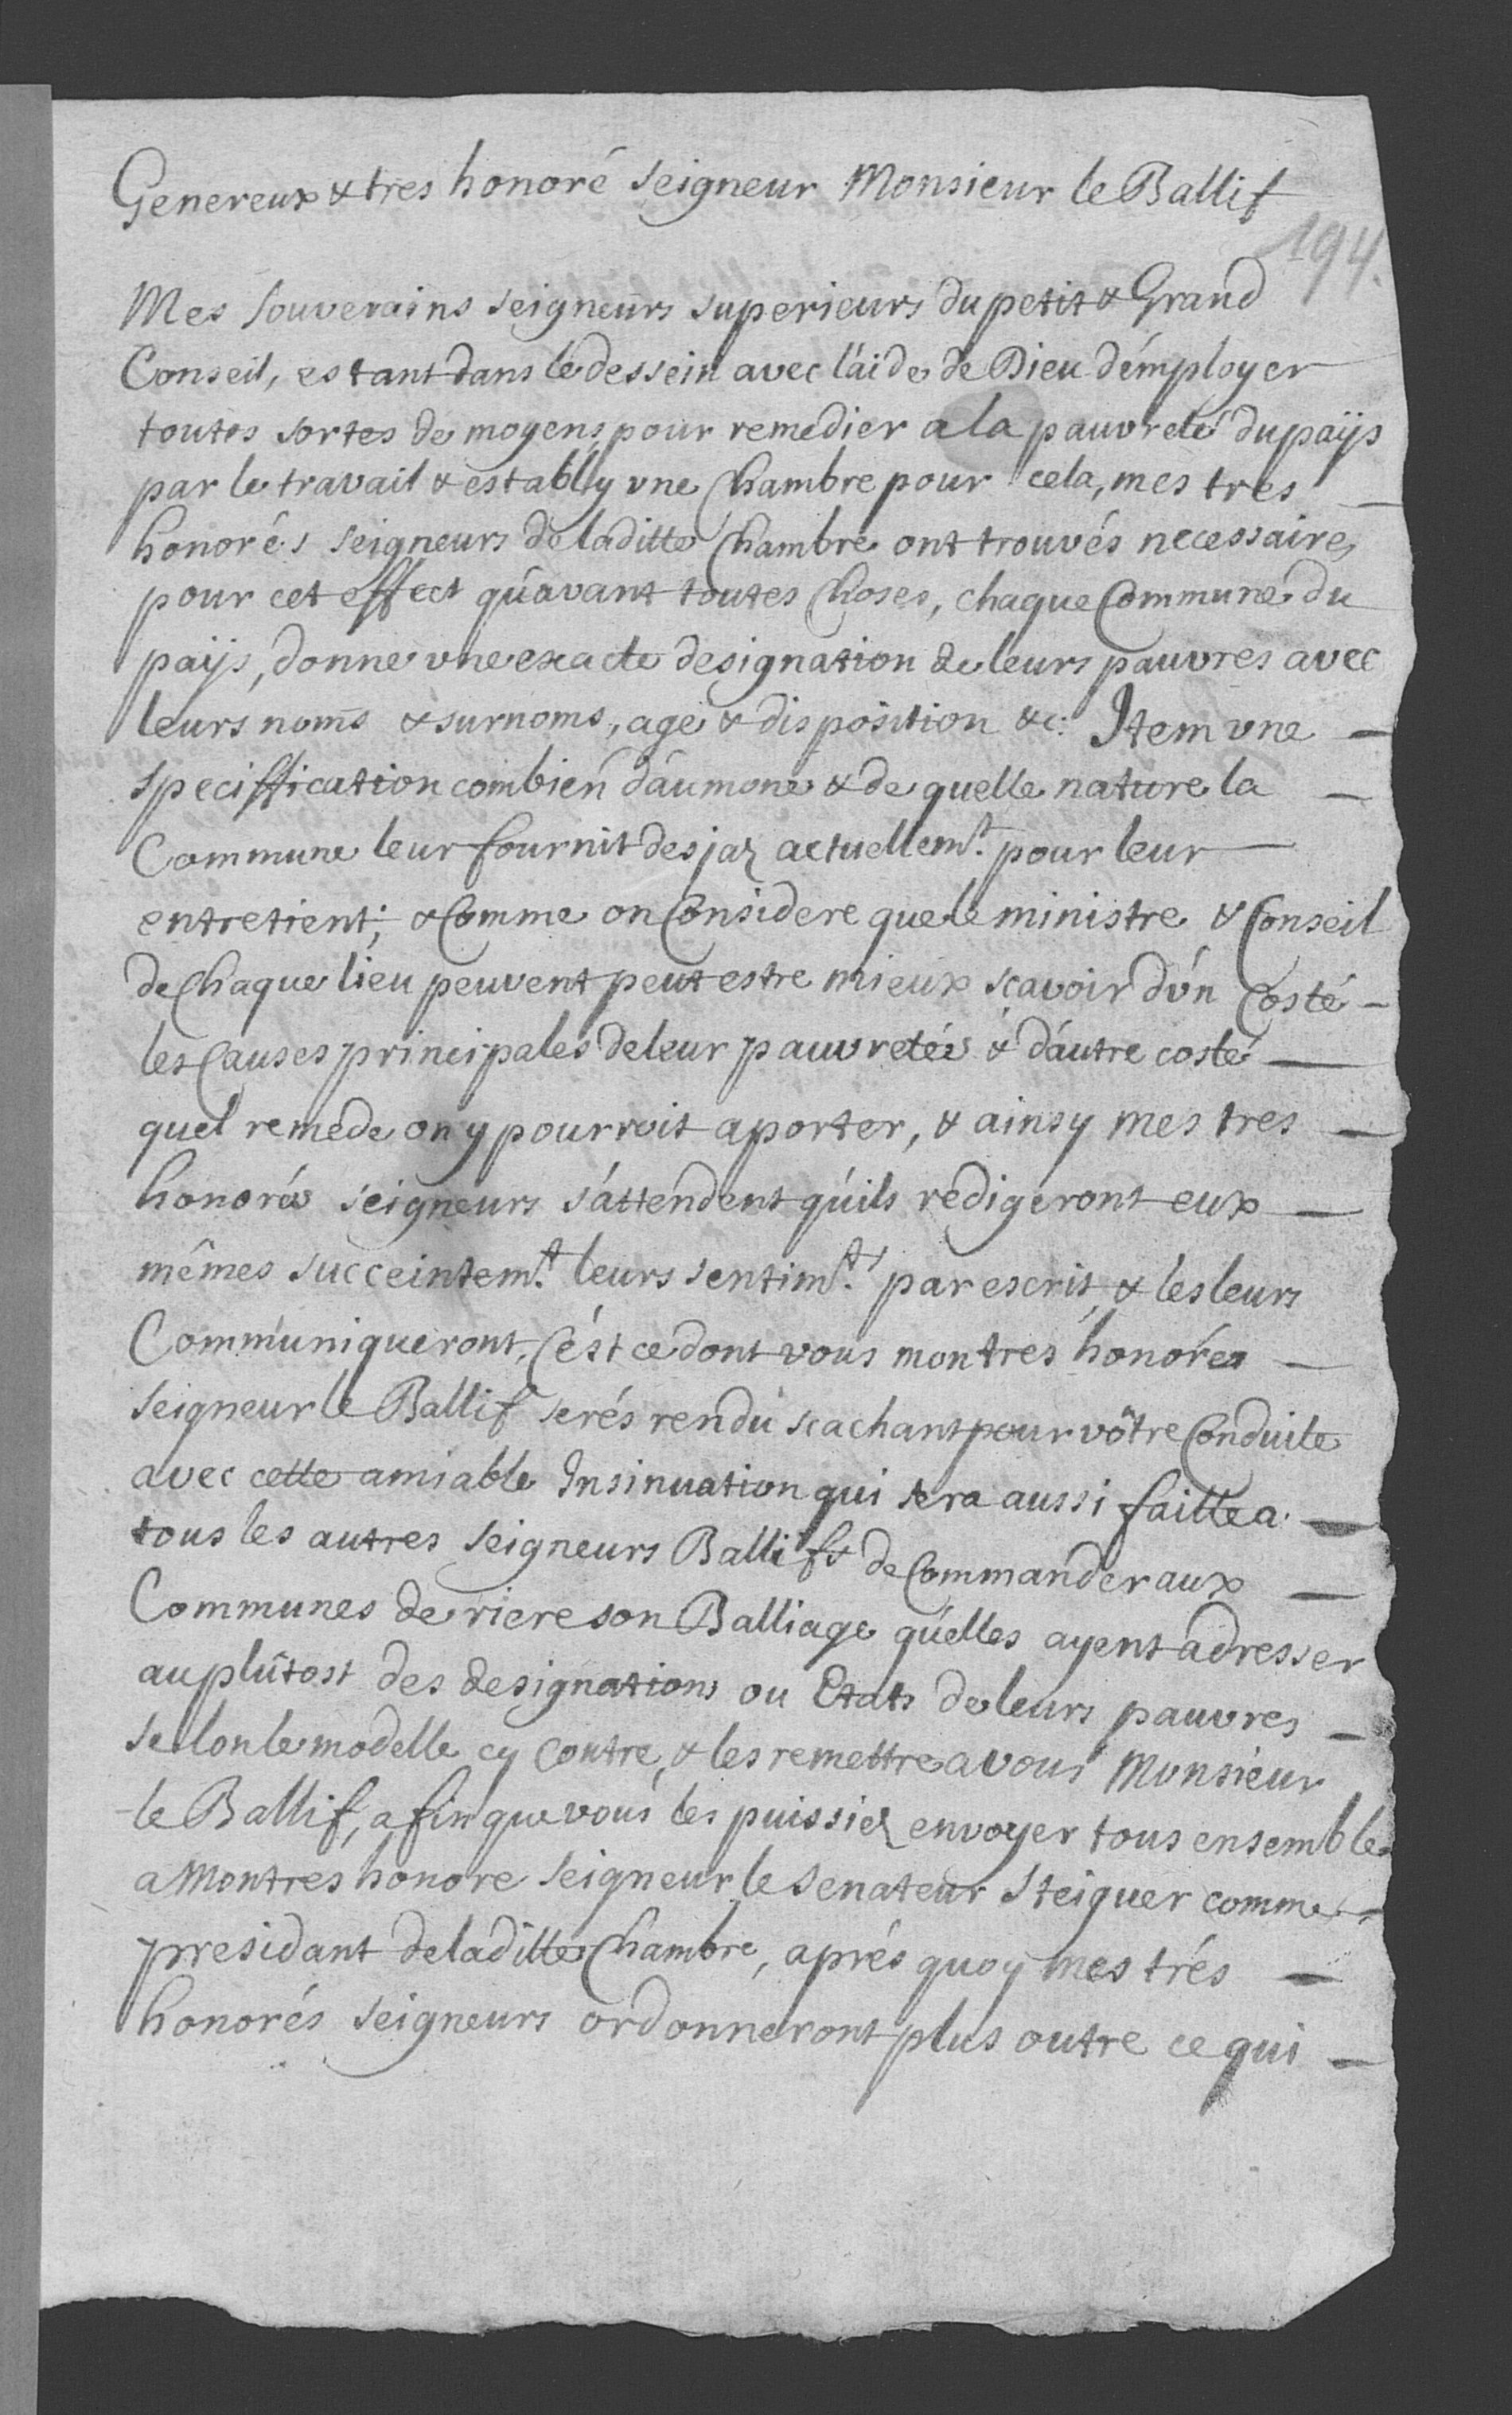 Genereux & tres honoré seigneur Monsieur le Ballif
194.
Mes souverains seigneurs superieurs du petit & Grand
Conseil, estant dans le dessein avec l'aide de Dieu d'employer
toutes sortes de moyens pour remedier a la pauvreté du païjs
par le travail & estably vne Chambre pour cela, mes tres
honorés seigneurs de laditte Chambre ont trouvés necessaire
pour cet effect qu'avant toutes Choses, chaque Commune du
païjs, donne vne exacte designation de leurs pauvres avec
leurs noms & surnoms, age & disposition &c: Item vne
speciffication combien d'aumone & de quelle nature la
Commune leur fournit desjaz actuellemt. pour leur
entretient; & Comme on Considere que le ministre & Conseil
de Chaque lieu peuvent peut estre mieux scavoir d'vn Costé
les Causes principales de leur pauvretée & d'autre costé
quel remede on y pourroit aporter, & ainsy mes tres
honorés seigneurs s'attendent qu'ils redigeront eux
mêmes succeintemt. leurs sentimts. par escrit, & les leurs
Communiqueront, C'est ce dont vous mon tres honorés
seigneur le Ballif serés rendu scachant pour vôtre Conduite
avec cette amiable Insinuation qui sera aussi faitte a
tous les autres seigneurs Ballifs de Commander aux
Communes de riere son Balliage qu'elles ayent adresser
au plûtost des designations ou Etats de leurs pauvres
selon le modelle cy Contre, & les remettre a vous Monsieur
le Ballif, afin que vous les puissiez envoyer tous ensemble
a Mon tres honore seigneur le Senateur Steiguer comme
presidant de laditte Chambre, aprés quoy mes trés
honorés seigneurs ordonneront plus outre ce qui